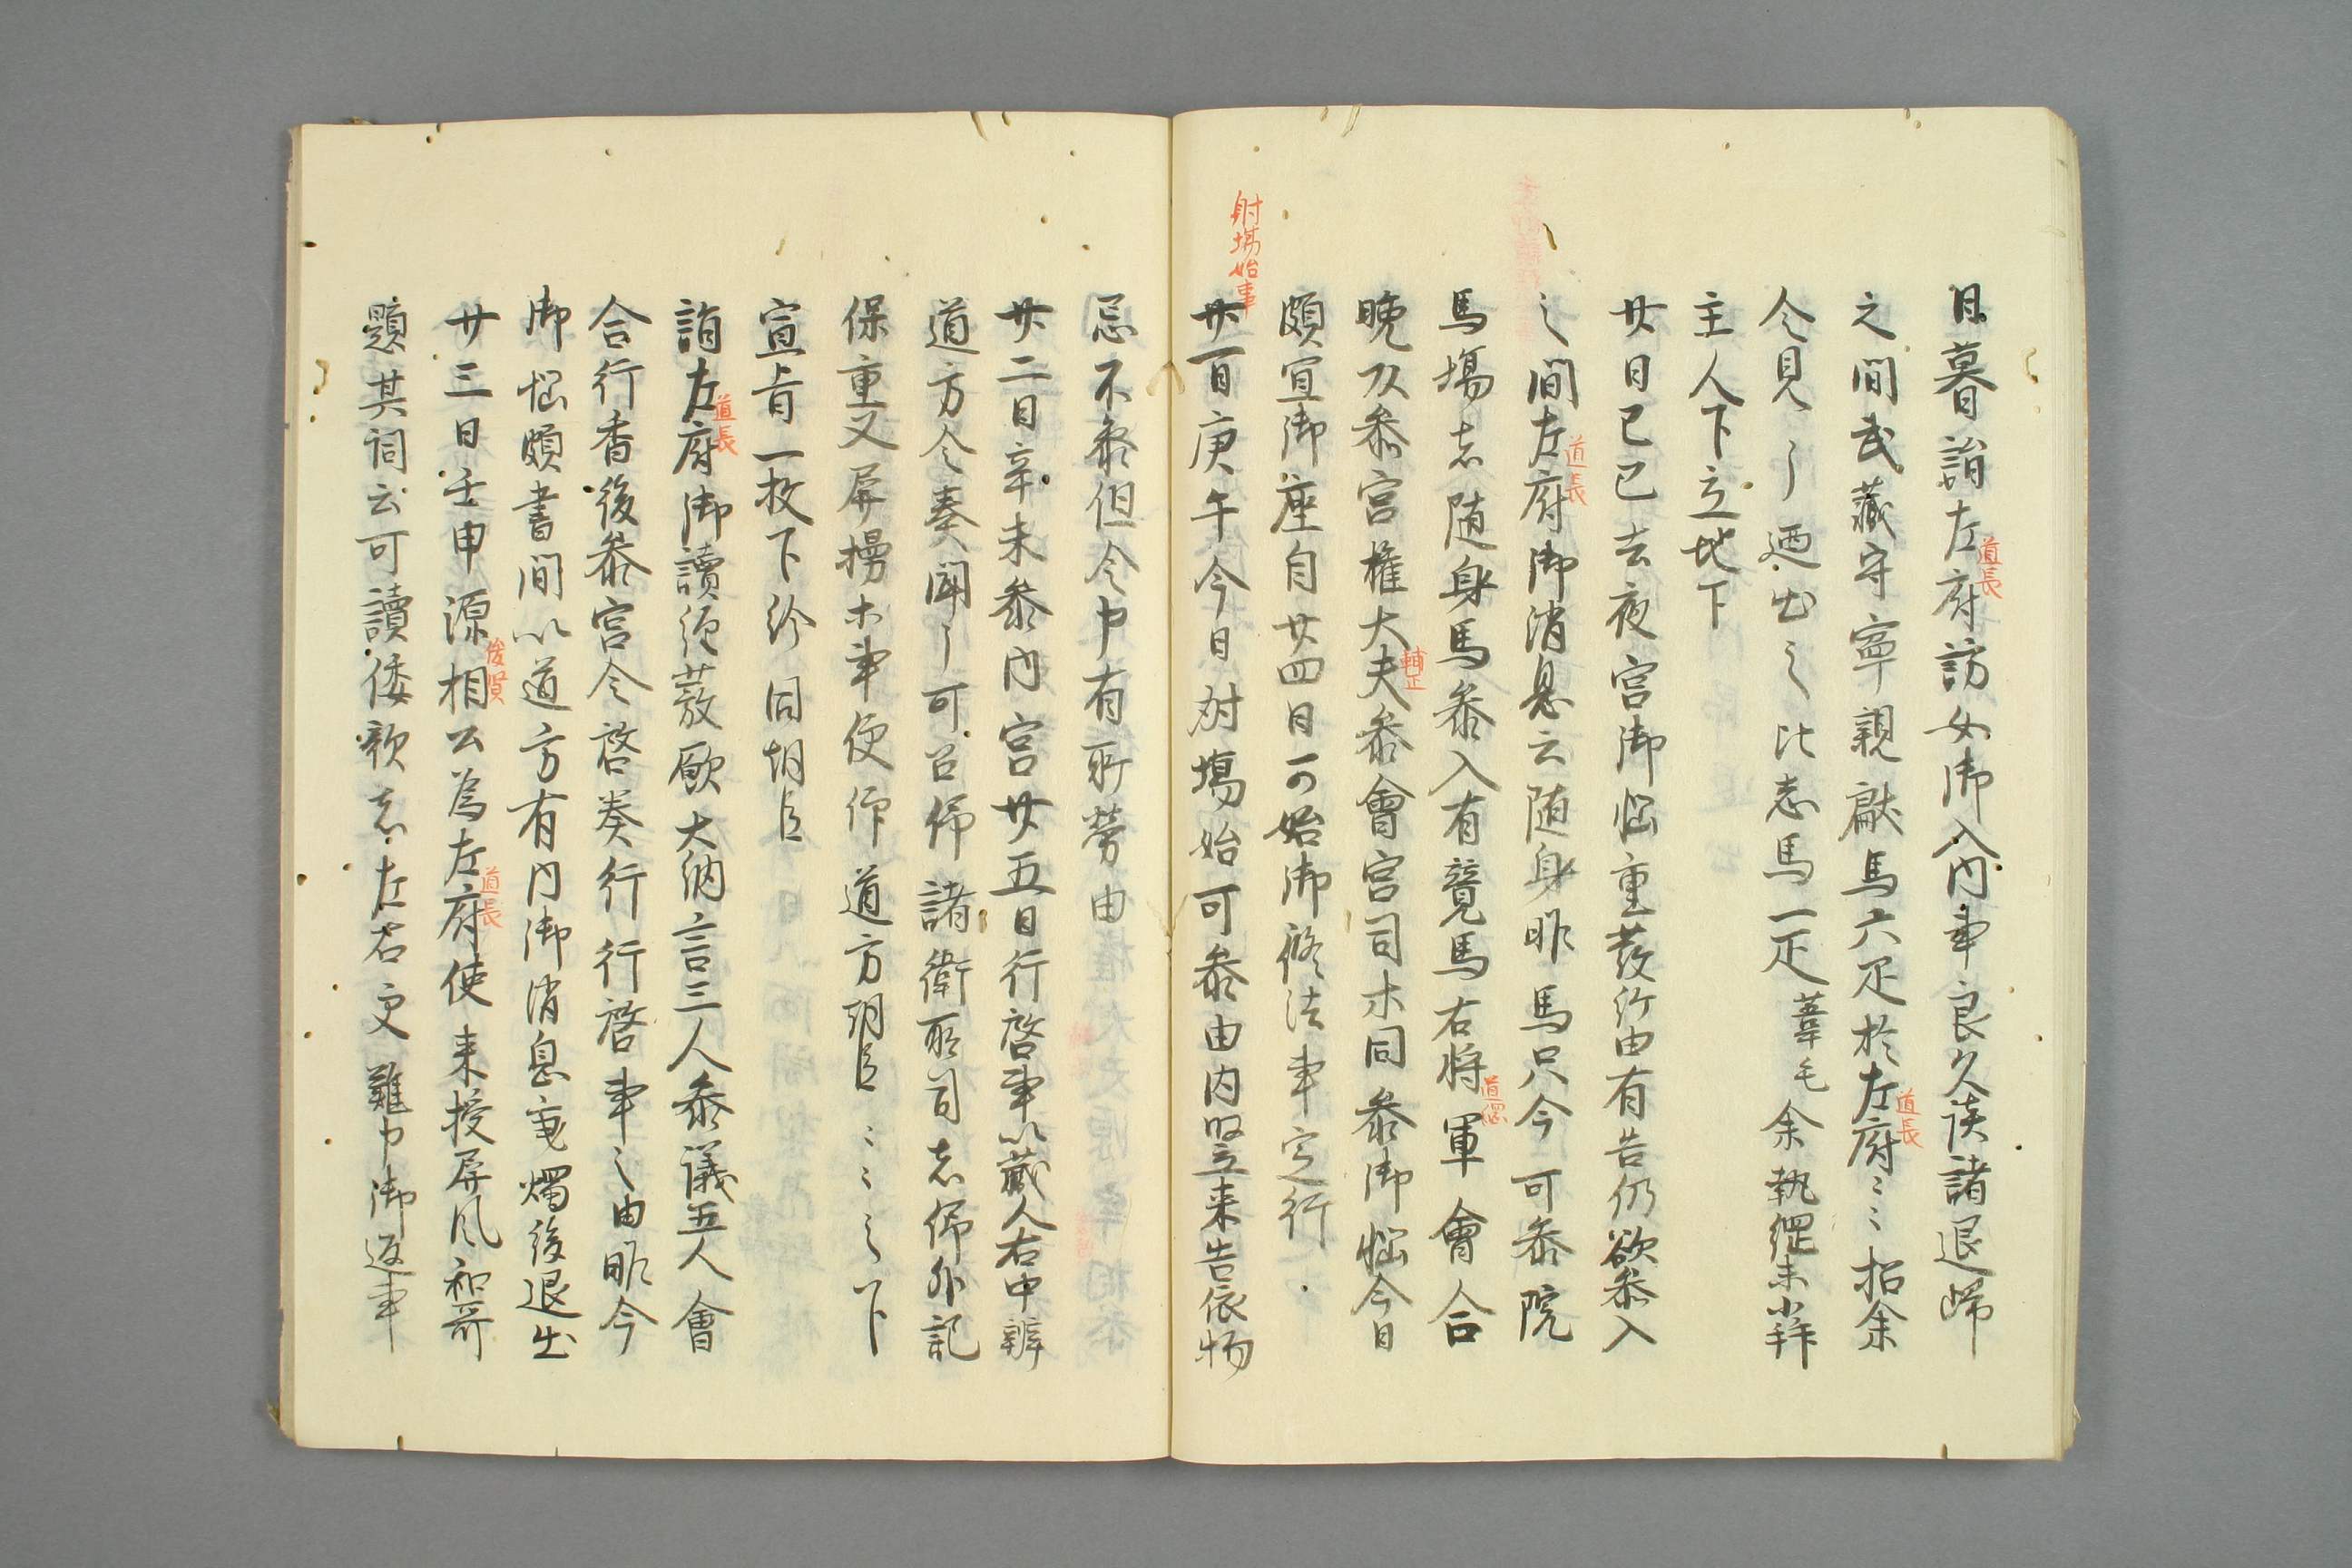 日暮詣左府訪女御入内事良久談諸退帰
道長
之間武藏守寧親献馬六疋於左府〻〻招余
道長
令見〻了廼出之〻比志馬一疋葦毛余執綱未
主人下立地下
廿日己巳去夜宮御悩重發給由有告仍欲参入
之間左府御消息云随身昨馬只今可参院
道長
馬場志随身馬参入有競馬右将軍會合
道綱
晩頭参宮権大夫参會宮司木同参御悩今日
輔正
頗宜御座自廿四日可始御修法事定行
射場始事
廿一日庚午今日射場始可参由内竪来告依物
忌不参但令申有所勞由
廿二日辛未参内宮廿五日行啓事以蔵人右中辨
道方令奏聞了可召仰諸衛所司志仰外記
保重又屏幔木事便仰道方朝臣〻〻〻下
宣旨一枚下給同朝臣
詣左府御讀經發願大納言三人参議五人會
道長
合行香後参宮令啓奏行行啓事之由昨今
御悩頗書間以道方有内御消息秉燭後退出
廿三日壬申源相公為左府使来授屏風和哥
俊賢
道長
題其詞云可讀倭歌志左右更難申御返事